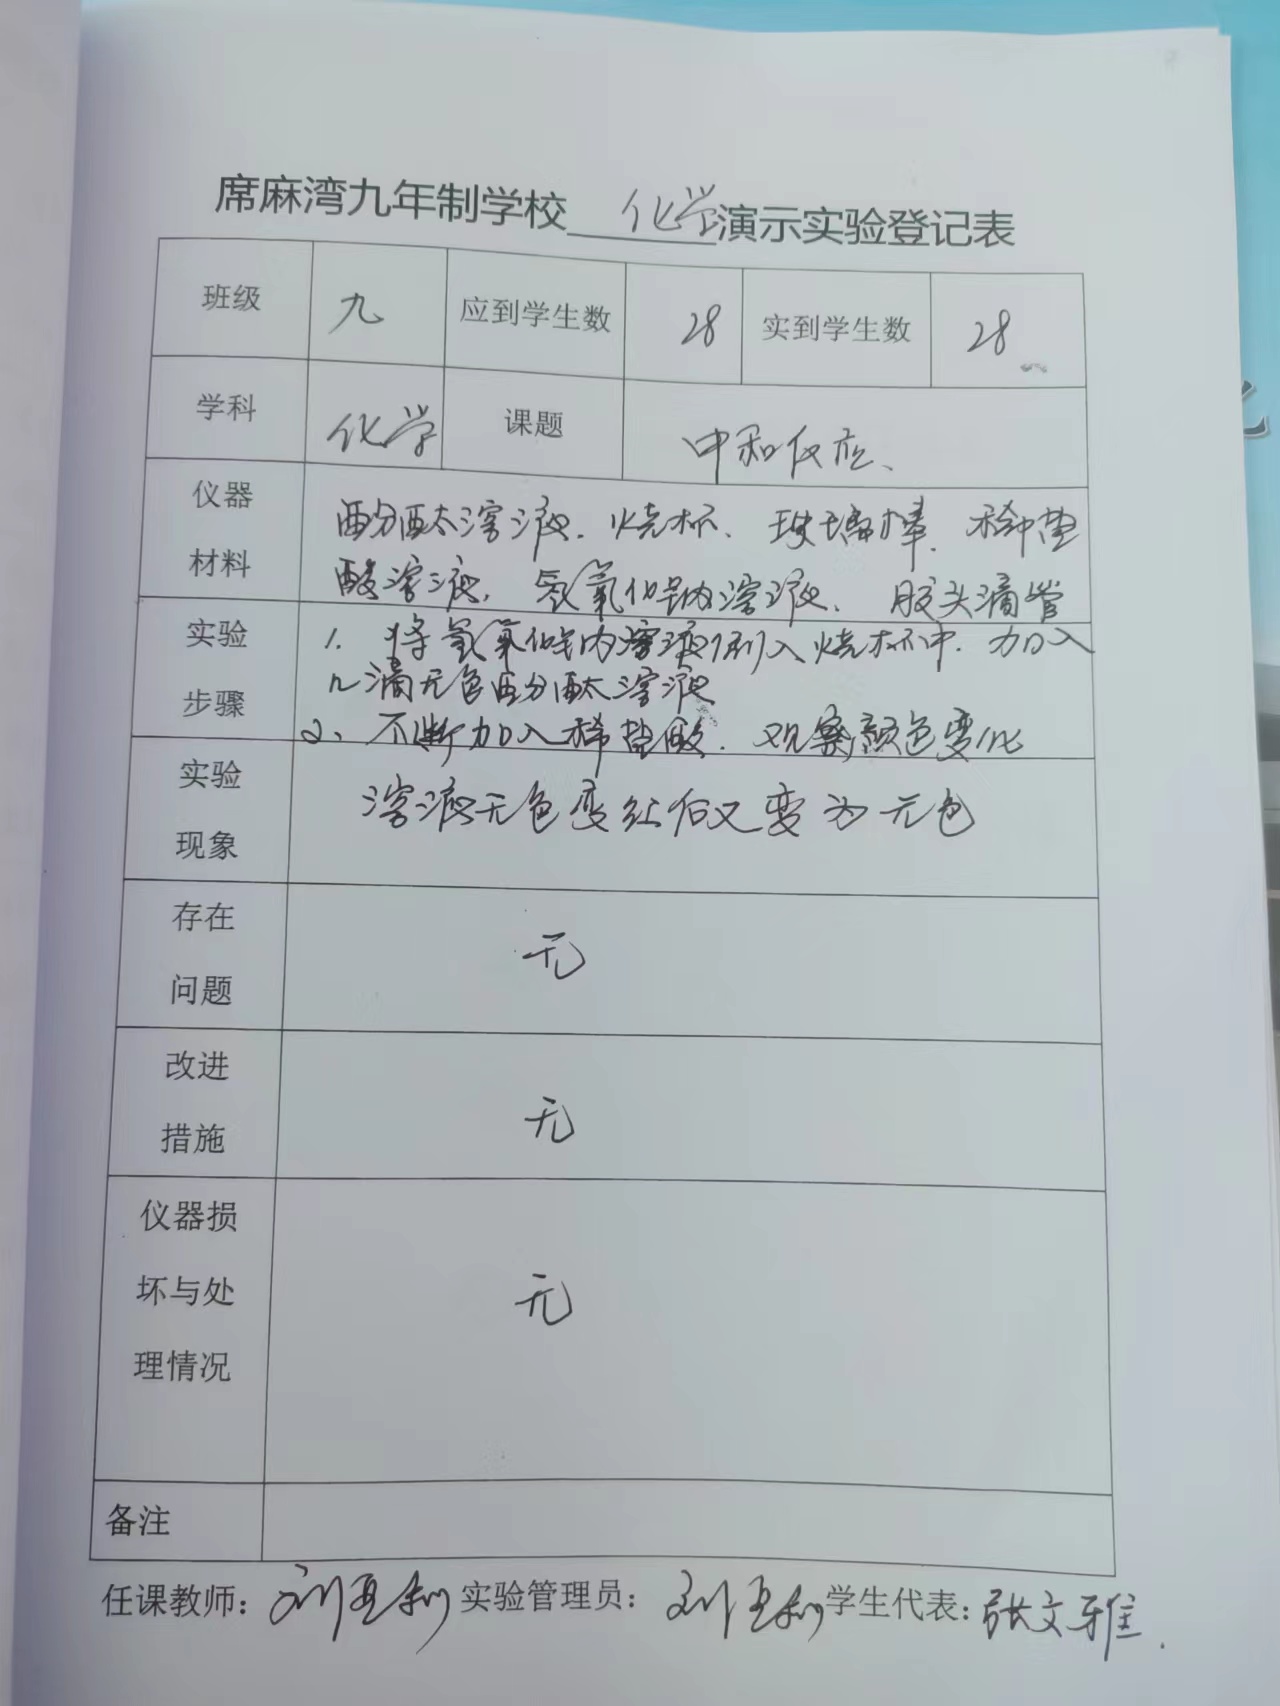 席麻湾九年制学校 化学 演示实验登记表
班级 九 应到学生数 28 实到学生数 28
学科 化学 课题 中和反应、
仪器材料 酚酞溶液、烧杯、玻璃棒、稀盐
酸溶液、氢氧化钠溶液、胶头滴管
实验步骤 1、将氢氧化钠溶液倒入烧杯中、加入
几滴无色酚酞溶液
2、不断加入稀盐酸、观察颜色变化
实验现象 溶液无色变红后又变为无色
存在问题 无
改进措施 无
仪器损坏与处理情况 无
备注
任课教师: 刘亚利 实验管理员: 刘亚利 学生代表: 张文雅